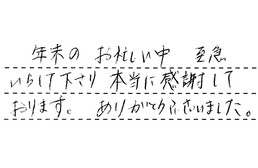 年末の お忙しい中 至急
いらして下さり 本当に感謝して
おります。 ありがとうございました。